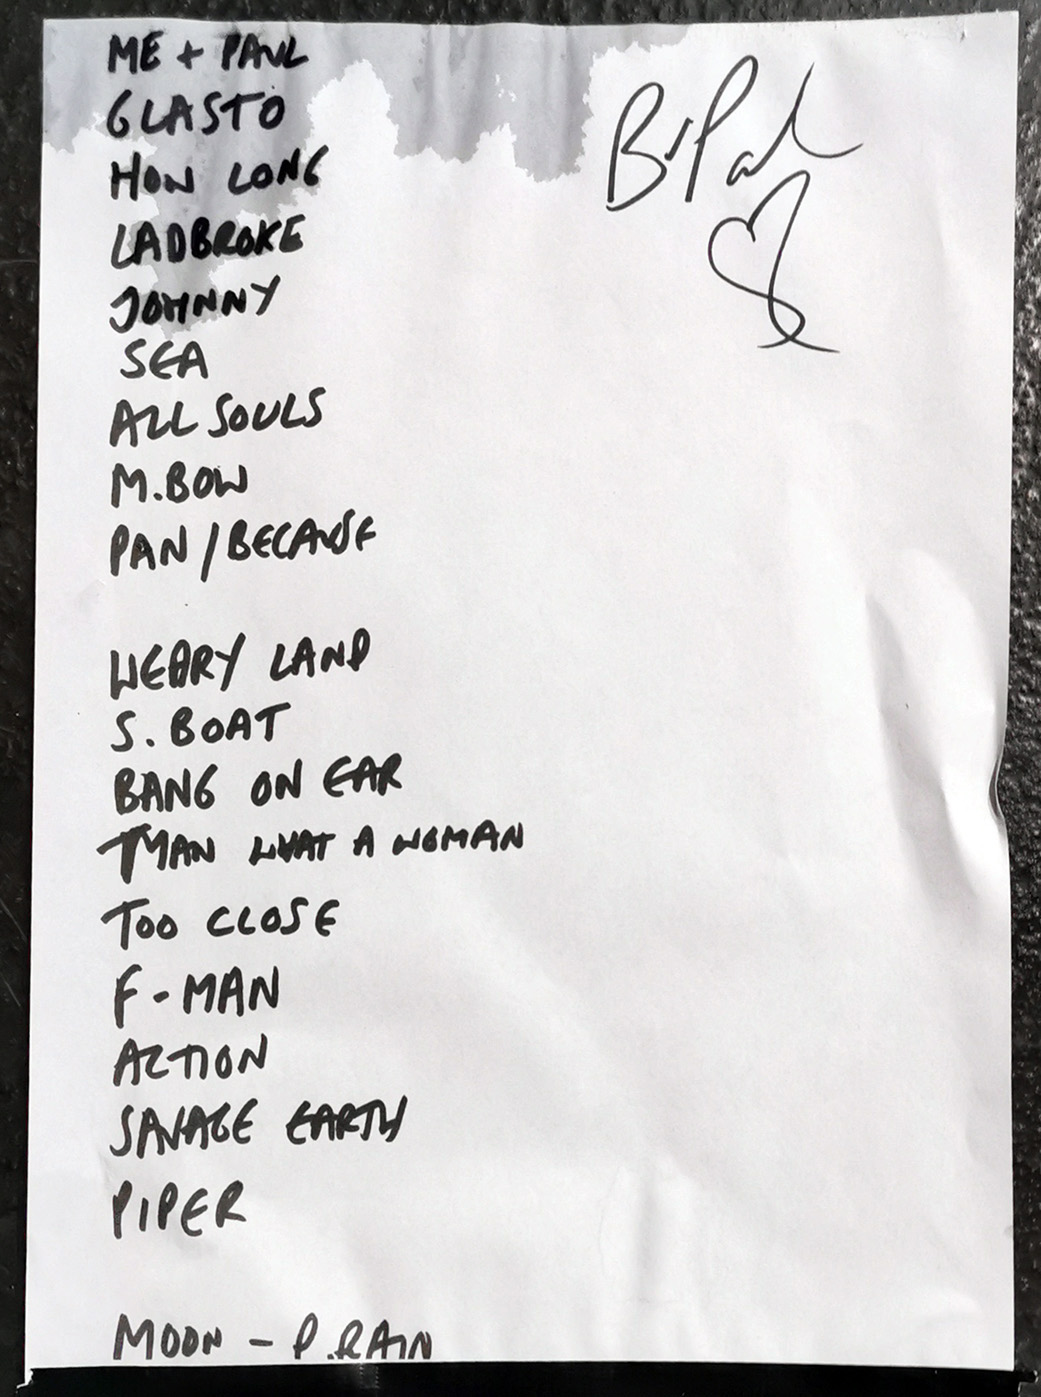 ME + PAUL
GLASTO
HOW LONG
LADBROKE
JOHNNY
SEA
ALL SOULS
M.BOW
PAN / BECAUSE
WEARY LAND
S. BOAT
BANG ON EAR
MAN WHAT A WOMAN
TOO CLOSE
F-MAN
ACTION
SAVAGE EARTH
PIPER
MOON - P.RAIN